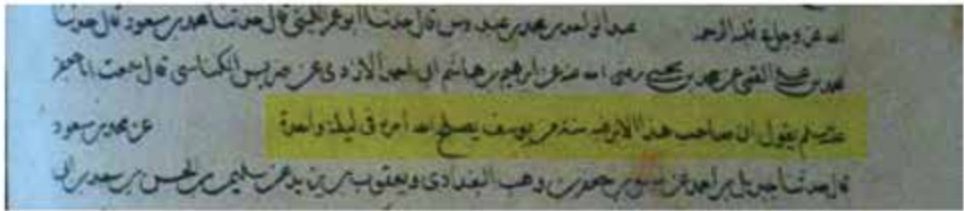 الله عز وجل به فقد الرحمه عبد الواحد بن محمد بن عبدوس قال حدثنا ابو عمرو قال حدثنا محمد بن مسعود قال حدثنا
محمد بن القمي عن محمد بن يحيى رضي الله عنه عن ابراهيم بن هاشم ابي احمد الازدي عن ضريس الكناسي قال سمعت ابا جعفر
يقول ان صاحب هذا الامر فيه سنة من يوسف يصلح الله امره في ليلة واحدة عن محمد بن مسعود
قال حدثنا جبريل بن احمد عن موسى بن جعفر بن وهب البغدادي ويعقوب بن يزيد عن سليمن بن الحسن بن سعد